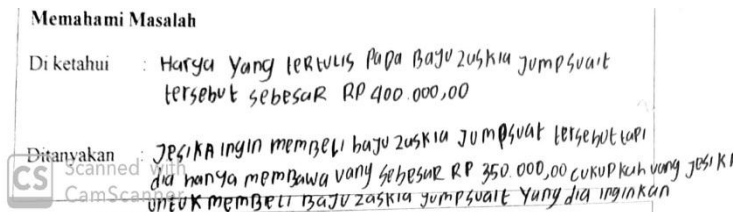 Memahami Masalah
Di ketahui : Harga Yang tertulis Pada Baju zaskia Jumpsuait
tersebut sebesar RP 400.000,00
Ditanyakan : Jesika ingin membeli baju zaskia Jumpsuat tersebut tapi
dia hanya membawa uang sebesar RP 350.000,00 cukupkah uang Jesika
untuk membeli Baju zaskia Jumpsuait Yang dia inginkan
CS Scanned with
CamScanner